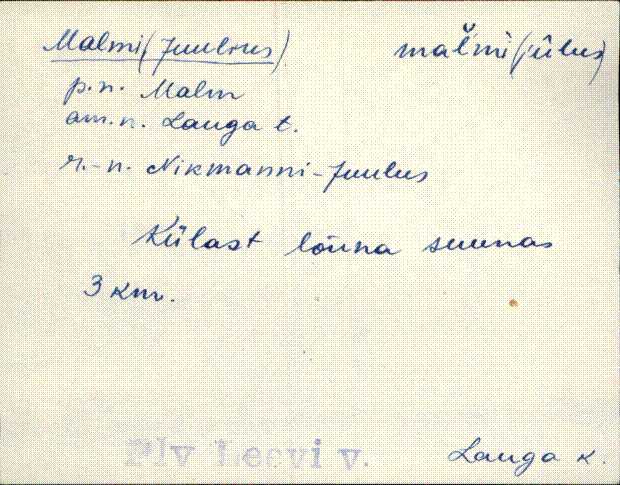 Malmi (Juulius) malmi (jūlus)
p.n. Malm
am.n. Lauga t.
r.-n. Nikmanni-Juulus
Külast lõuna suunas
3 km.
Plv Leevi v. Lauga k.